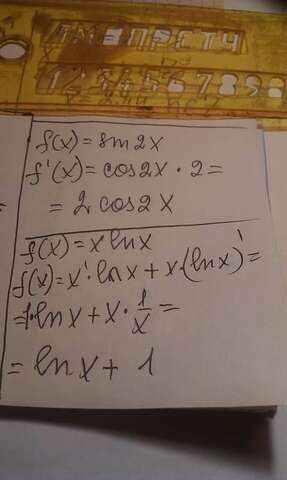 ЛМНОПРСТЧ
1234567890
f(x) = sin 2x
f'(x) = cos 2x · 2 =
= 2 cos 2x
f(x) = x ln x
f(x) = x' · ln x + x · (ln x)' =
= 1 · ln x + x · 1/x =
= ln x + 1